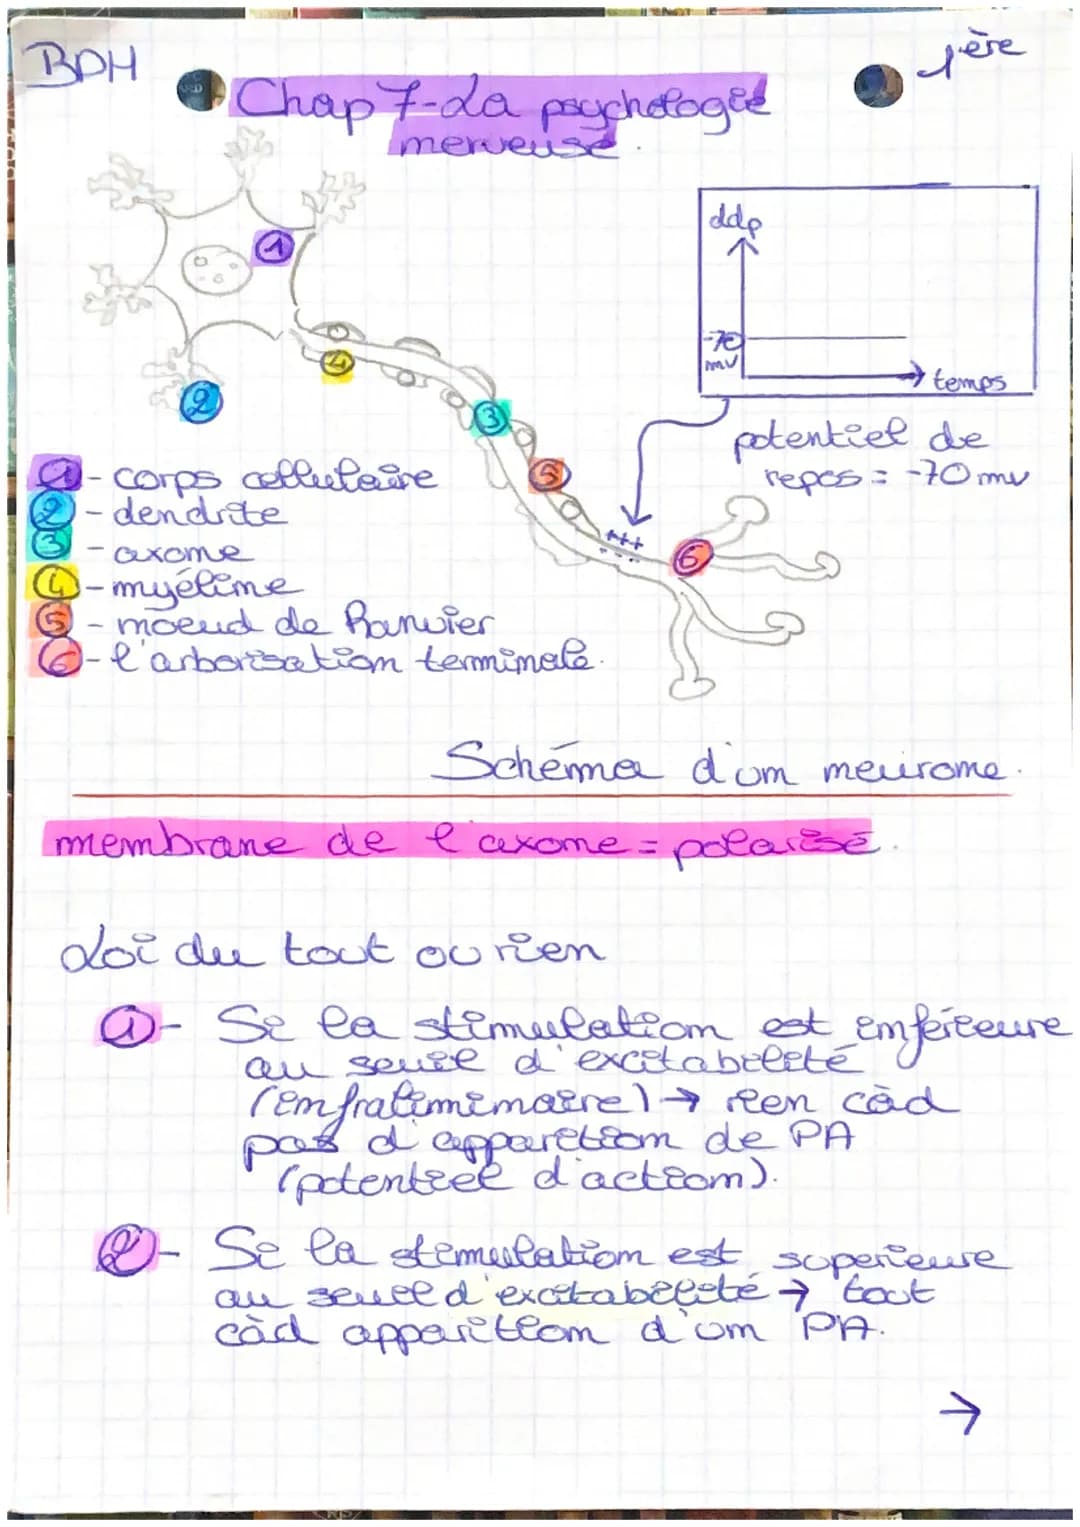 BPH
1ère
Chap 7-La psychologie
nerveuse.
1
2
3
4
5
6
ddp
-70
mv
temps
potentiel de
repos = -70 mv
+++
---
1 - corps cellulaire
2 - dendrite
3 - axone
4 - myéline
5 - noeud de Ranvier
6 - l'arborisation terminale.
Schéma d'un neurone.
membrane de l'axone = polarisé.
Loi du tout ou rien
1 - Si la stimulation est inférieure
au seuil d'excitabilité
(infraliminaire) → rien càd
pas d'apparition de PA
(potentiel d'action).
2 - Si la stimulation est superieure
au seuil d'excitabilité → tout
càd apparition d'un PA.
→